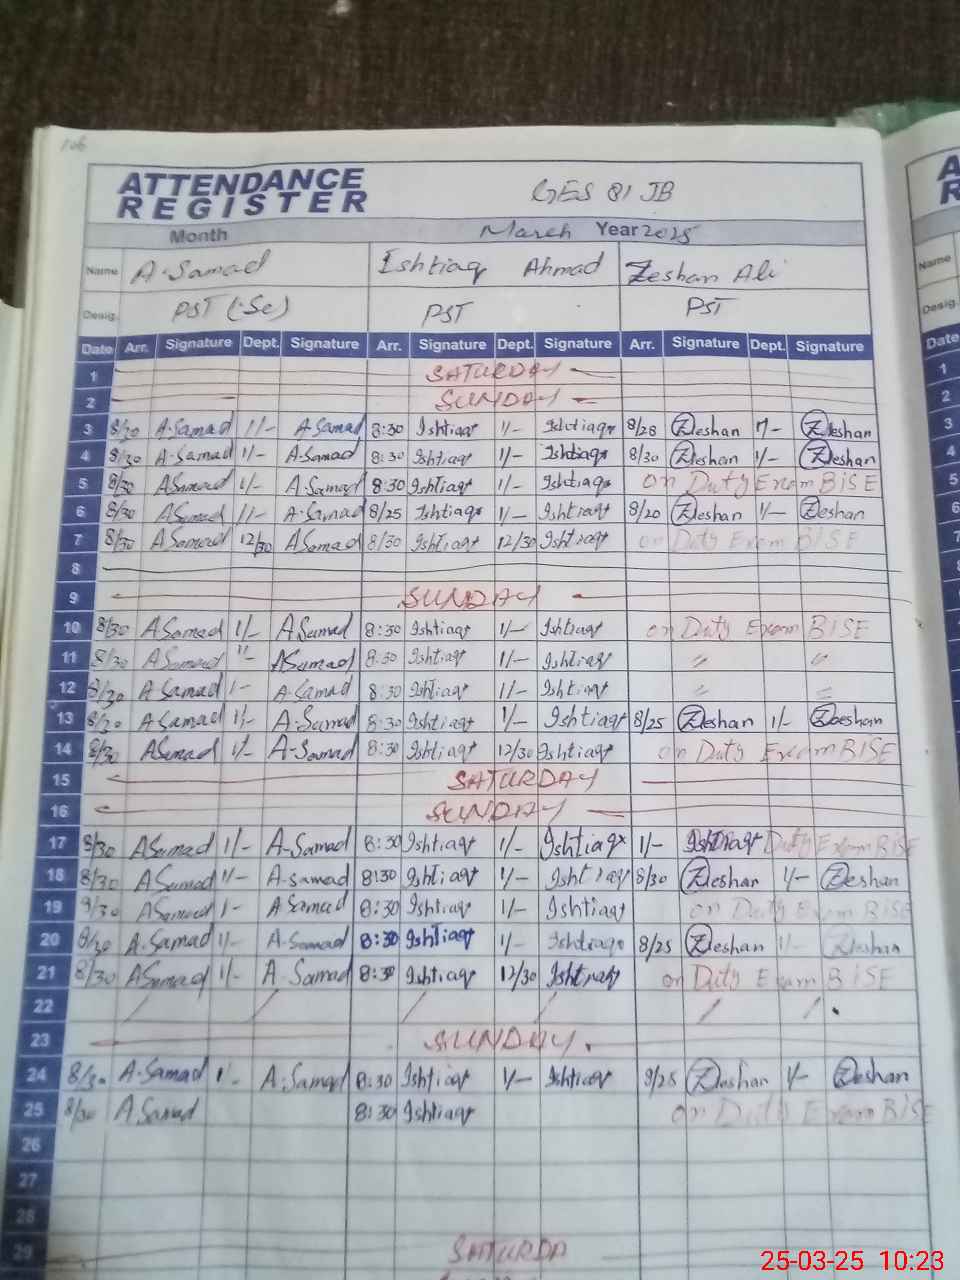 106
ATTENDANCE
REGISTER
GES 81 JB
Month March Year 2025
Name A·Samad Ishtiaq Ahmad Zeshan Ali
Desig. PST (·Se) PST PST
Date Arr. Signature Dept. Signature Arr. Signature Dept. Signature Arr. Signature Dept. Signature
1 SATURDAY
2 SUNDAY
3 8/30 A·Samad 1/- A·Samad 8:30 Ishtiaq 1/- Ishtiaq 8/28 Zeshan 1/- Zeshan
4 8/30 A·Samad 1/- A·Samad 8:30 Ishtiaq 1/- Ishtiaq 8/30 Zeshan 1/- Zeshan
5 8/30 ASamad 1/- A·Samad 8:30 Ishtiaq 1/- Ishtiaq on Duty Exam BISE
6 8/30 ASamad 1/- A·Samad 8/25 Ishtiaq 1/- Ishtiaq 8/20 Zeshan 1/- Zeshan
7 8/30 ASamad 12/30 ASamad 8/30 Ishtiaq 12/30 Ishtiaq on Duty Exam BISE
8
9 SUNDAY
10 8/30 ASamad 1/- ASamad 8:30 Ishtiaq 1/- Ishtiaq on Duty Exam BISE
11 8/30 ASamad 1/- ASamad 8:30 Ishtiaq 1/- Ishtiaq 〃 〃
12 8/30 A·Samad 1- A·Samad 8:30 Ishtiaq 1/- Ishtiaq 〃 〃
13 8/30 A·Samad 1/- A·Samad 8:30 Ishtiaq 1/- Ishtiaq 8/25 Zeshan 1/- Zeshan
14 8/30 ASamad 1/- A-Samad 8:30 Ishtiaq 12/30 Ishtiaq on Duty Exam BISE
15 SATURDAY
16 SUNDAY
17 8/30 ASamad 1/- A-Samad 8:30 Ishtiaq 1/- Ishtiaq 1/- Ishtiaq Duty Exam BISE
18 8/30 ASamad 1/- A-Samad 8:30 Ishtiaq 1/- Ishtiaq 8/30 Zeshan 1/- Zeshan
19 8/30 ASamad 1- A Samad 8:30 Ishtiaq 1/- Ishtiaq on Duty Exam BISE
20 8/30 A·Samad 1/- A·Samad 8:30 Ishtiaq 1/- Ishtiaq 8/25 Zeshan 1/- Zeshan
21 8/30 ASamad 1/- A·Samad 8:30 Ishtiaq 12/30 Ishtiaq on Duty Exam BISE
22 / / / / / /
23 SUNDAY
24 8/30 A·Samad 1- A·Samad 8:30 Ishtiaq 1/- Ishtiaq 8/25 Zeshan 1/- Zeshan
25 8/30 A Samad 8:30 Ishtiaq on Duty Exam BISE
26
27
28
29 SATURDA
Name
Desig.
Date
1
2
3
4
5
6
7
25-03-25 10:23